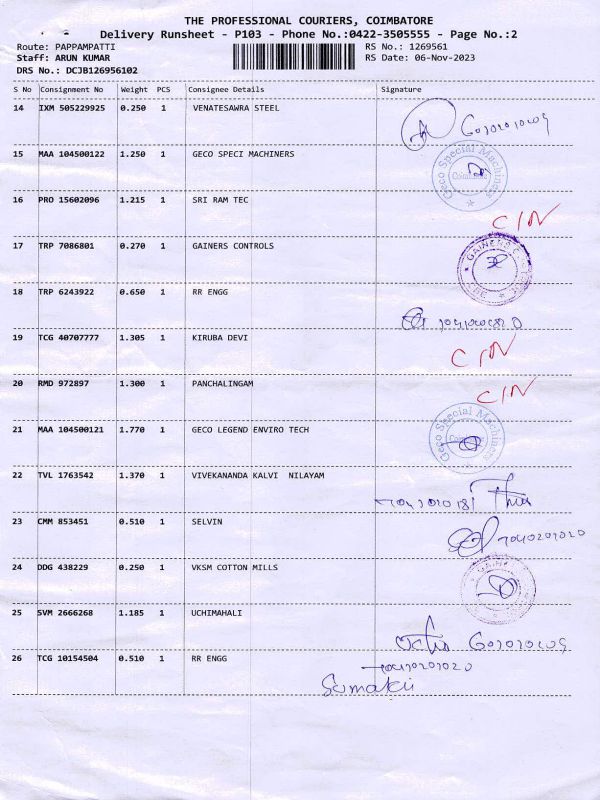 THE PROFESSIONAL COURIERS, COIMBATORE
Delivery Runsheet - P103 - Phone No.:0422-3505555 - Page No.:2
Route: PAPPAMPATTI RS No.: 1269561
Staff: ARUN KUMAR RS Date: 06-Nov-2023
DRS No.: DCJB126956102
S No Consignment No Weight PCS Consignee Details Signature
14 IXM 505229925 0.250 1 VENATESAWRA STEEL
15 MAA 104500122 1.250 1 GECO SPECI MACHINERS
Geco Special Machines
16 PRO 15602096 1.215 1 SRI RAM TEC
C/N
17 TRP 7086801 0.270 1 GAINERS CONTROLS
GAINERS
18 TRP 6243922 0.650 1 RR ENGG
19 TCG 40707777 1.305 1 KIRUBA DEVI
C/N
20 RMD 972897 1.300 1 PANCHALINGAM
C/N
21 MAA 104500121 1.770 1 GECO LEGEND ENVIRO TECH
Geco Special Machines
22 TVL 1763542 1.370 1 VIVEKANANDA KALVI NILAYAM
23 CMM 853451 0.510 1 SELVIN
24 DDG 438229 0.250 1 VKSM COTTON MILLS
25 SVM 2666268 1.185 1 UCHIMAHALI
26 TCG 10154504 0.510 1 RR ENGG